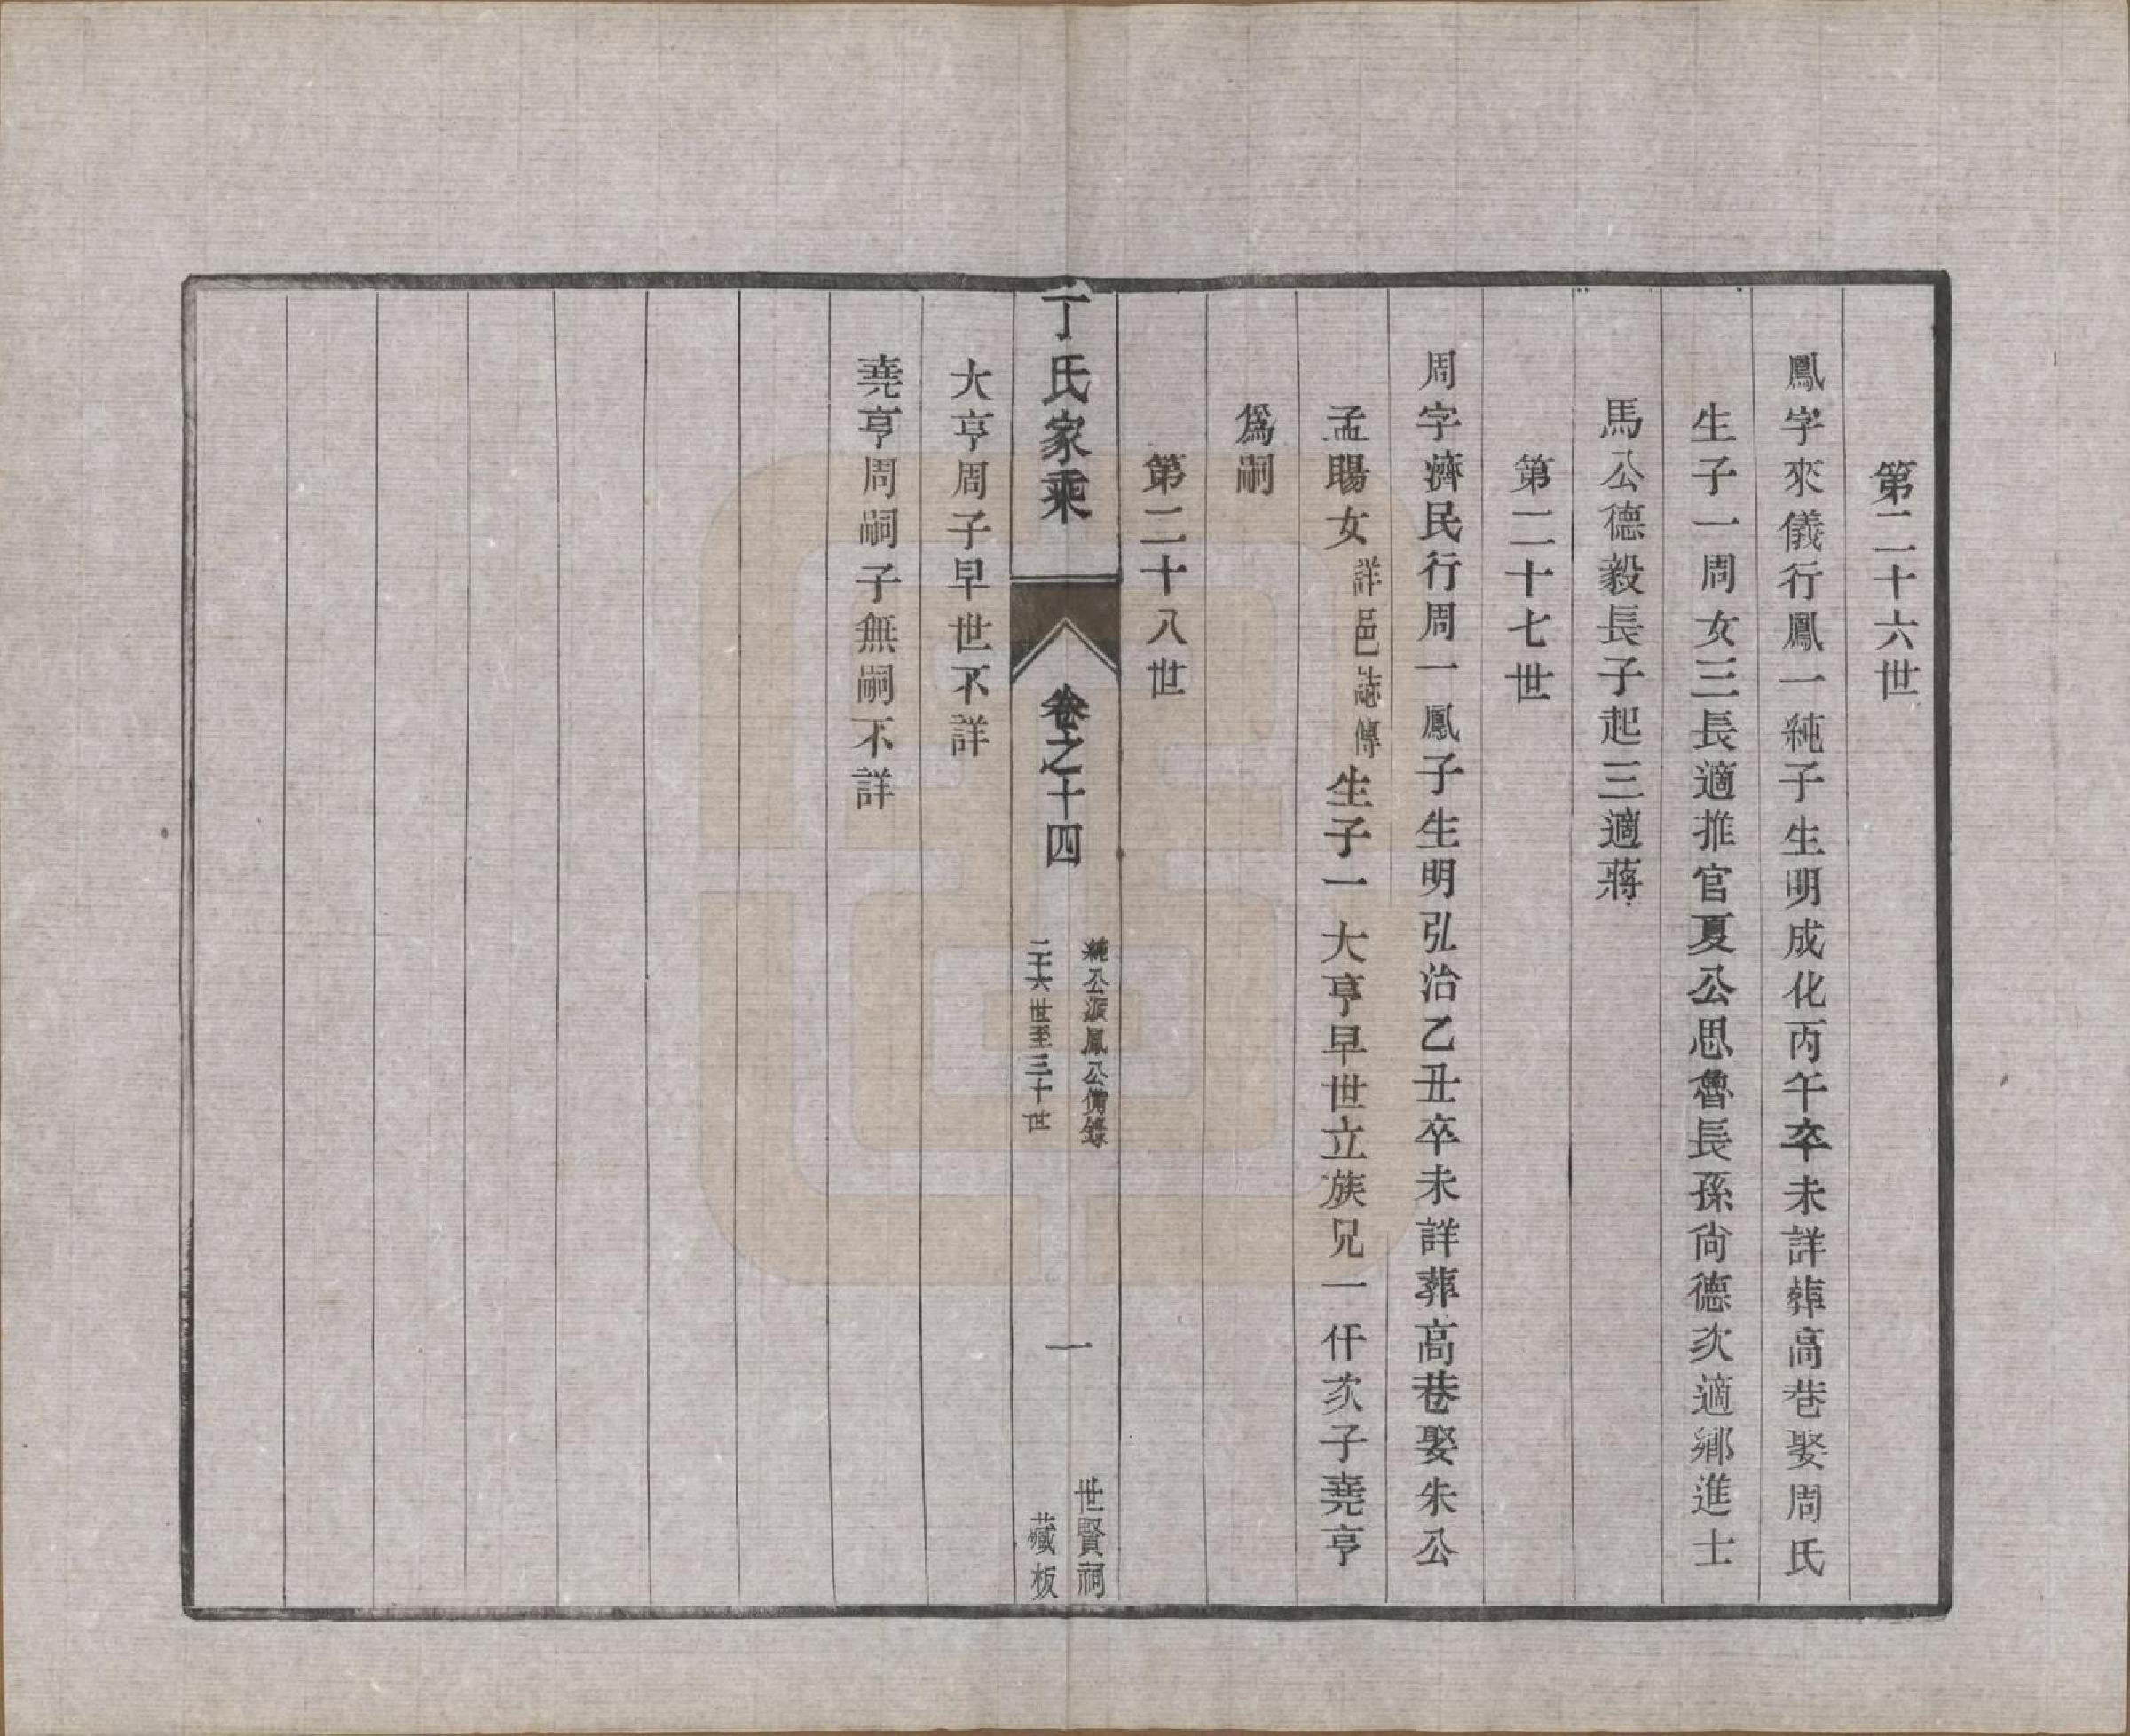 第二十六世
鳳字來儀行鳳一純子生明成化丙午卒未詳葬高巷娶周氏
生子一周女三長適推官夏公思魯長孫尙德次適鄉進士
馬公德毅長子起三適蔣
第二十七世
周字濟民行周一鳳子生明弘治乙丑卒未詳葬高巷娶朱公
孟暘女詳邑誌傳生子一大亨早世立族兄一仟次子堯亨
爲嗣
第二十八世
丁氏家乘
卷之十四
純公派鳳公備錄
二十六世至三十世
一
世賢祠
藏板
大亨周子早世不詳
堯亨周嗣子無嗣不詳